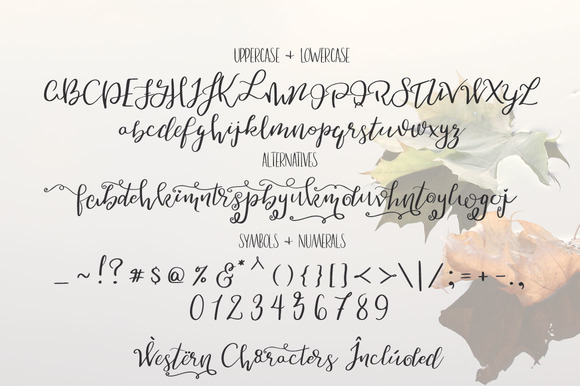 UPPERCASE + LOWERCASE
ABCDEFGHIJKLMNOPQRSTUVWXYZ
abcdefghijklmnopqrstuvwxyz
ALTERNATIVES
SYMBOLS + NUMERALS
_ ~ ! ? # $ @ % & * ^ ( ) { } [ ] < > \ | / ; = + - . ,
0 1 2 3 4 5 6 7 8 9
Ẁestërn Characters Înclúded